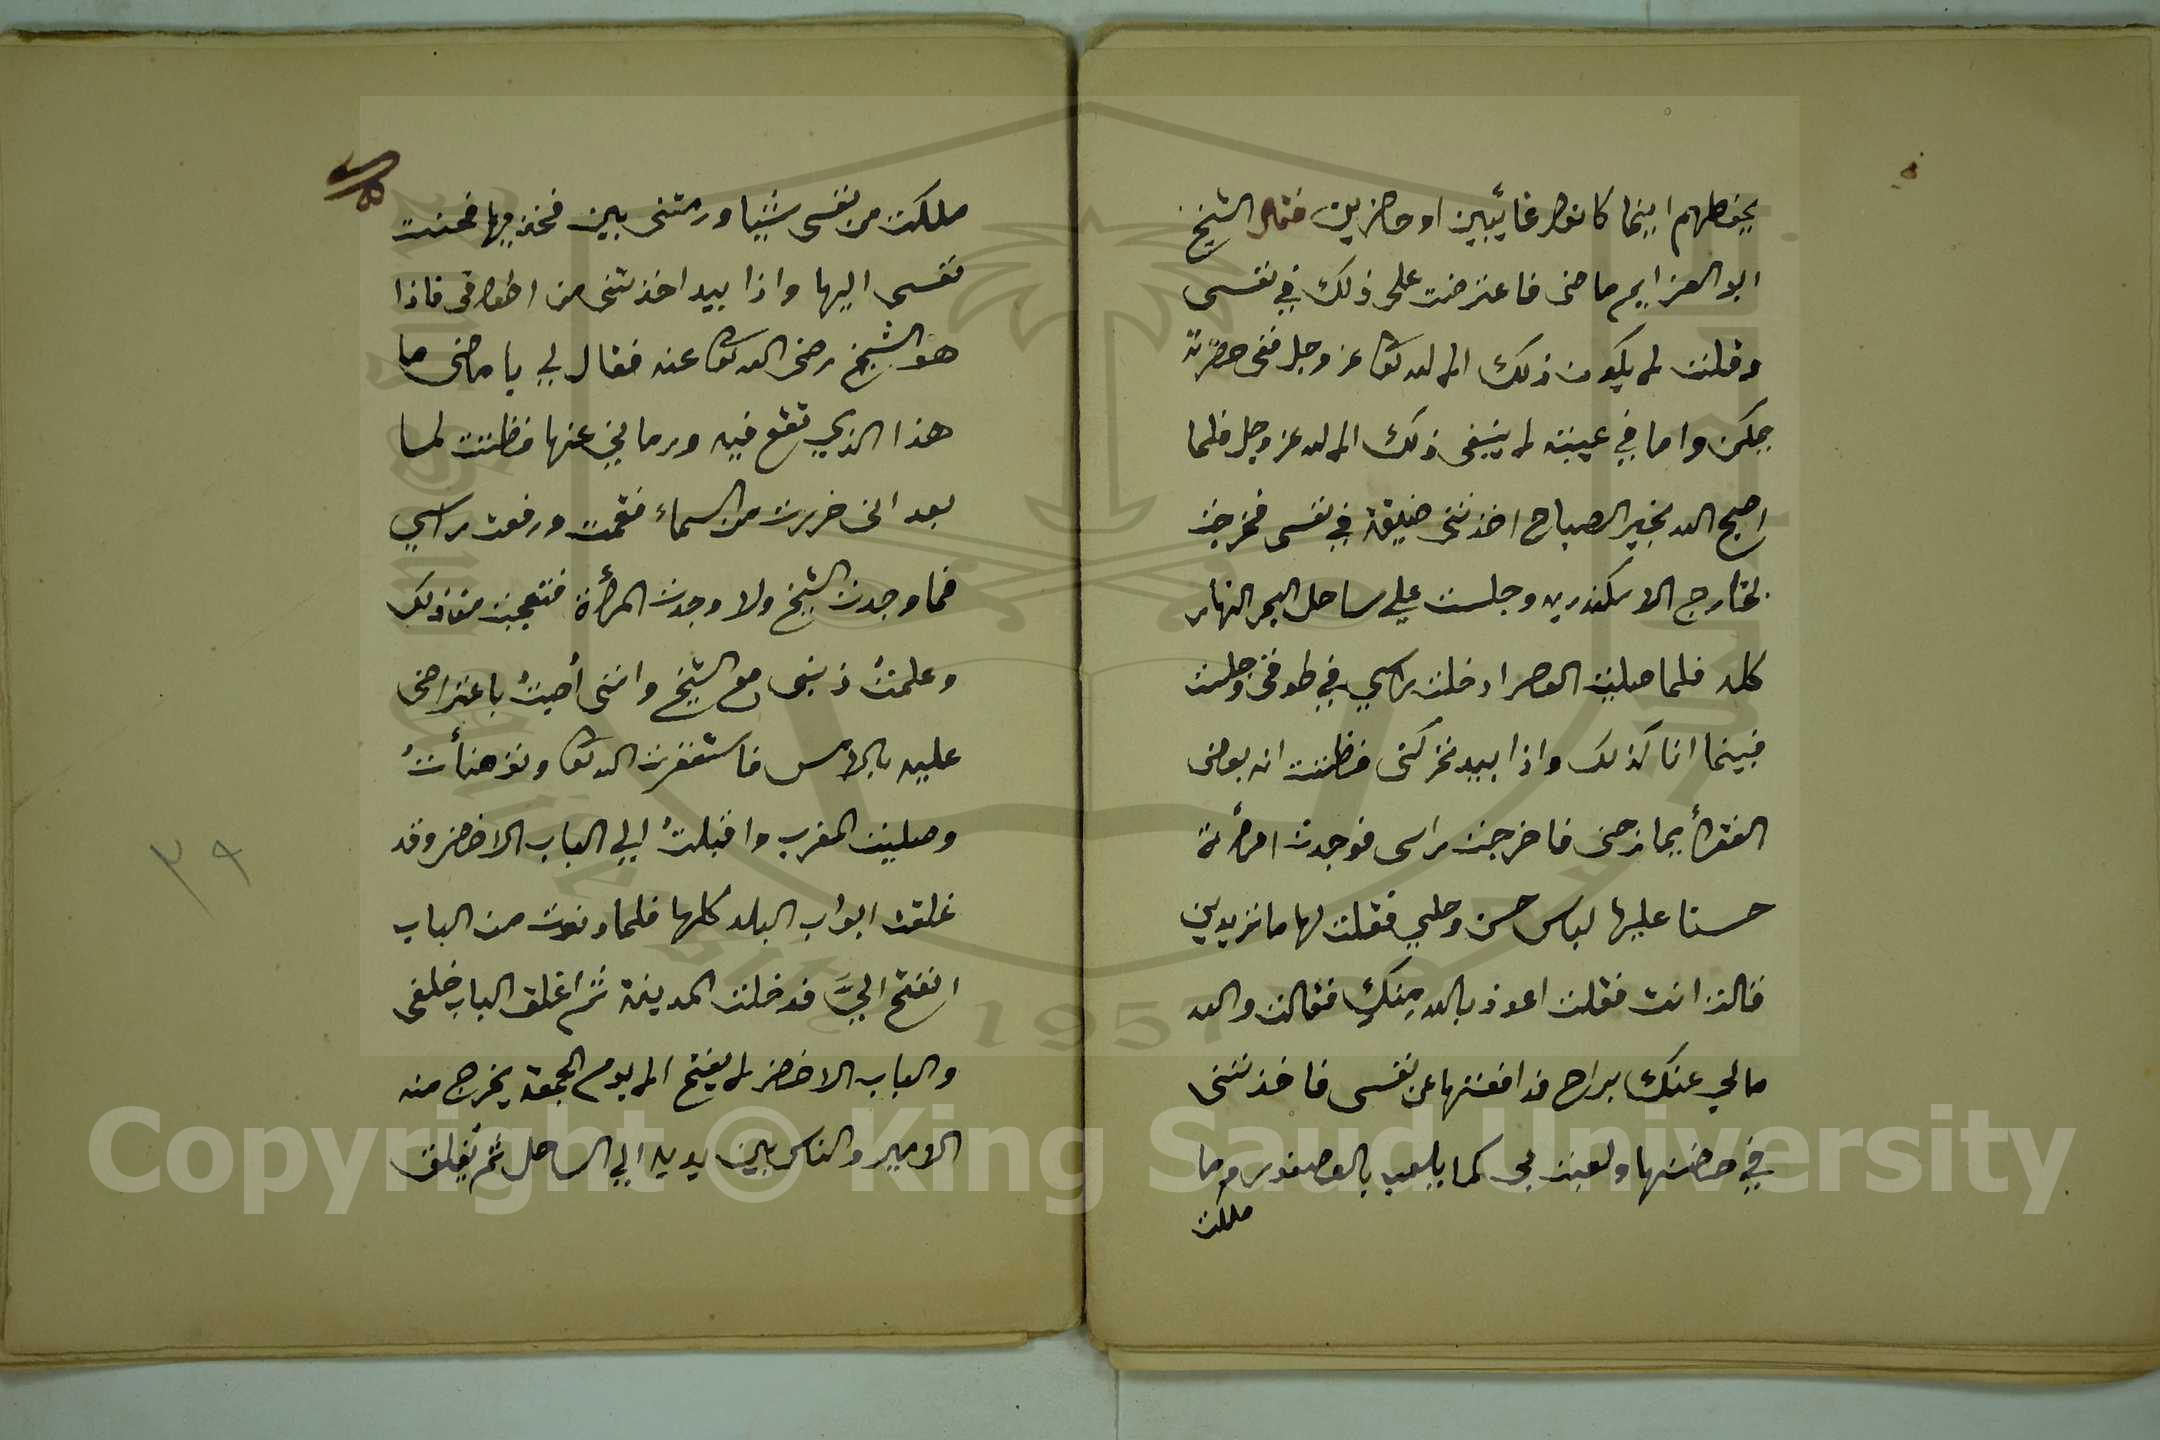 يحفظهم اينما كانوا غائبين او حاضرين فقال الشيخ
ابو العزايم ماضى فاعترضت على ذلك في نفسى
وقلت لا يكون ذلك الا لله تعا عز وجل ففى حضرته
يمكن واما في غيبته لا ينبغى ذلك الا لله عز وجل فلما
اصبح الله بخير الصباح اخذتنى ضيقة في نفسى فخرجت
بخارج الاسكندريه وجلست علي ساحل البحر النهار
كله فلما صليت العصر ادخلت راسي في طوقى وجلست
فبينما انا كذلك واذا بيد تحركنى فظننت انه بعض
الفقرأ يمازحنى فاخرجت راسى فوجدت امرأة
حسنا عليها لباس حسن وحلي فقلت لها ما تريدين
قالت انت فقلت اعوذ بالله مِنكِ فقالت والله
مالي عنك براح فدافعتها عن نفسى فاخذتنى
في حضنها ولعبت بى كما يلعب بالعصفور وما
ملكت
ملكت من نفسى شيا ورمتنى بين فخذيها فحنت
نفسى اليها واذا بيد اخذتنى من اطواقى فاذا
هو الشيخ رضى الله تعا عنه فقال لي يا ماضى ما
هذا الذي تقع فيه ورماني عنها فظننت لما
بعد انى خررت من السماء فقمت ورفعت راسي
فما وجدت الشيخ ولا وجدت المرأة فتعجبت من ذلك
وعلمتُ ذنبى مع الشيخ واننى أصبتُ باعتراضى
عليه بالامس فاستغفرت الله تعا وتوضأتُ
وصليت المغرب واقبلتُ الي الباب الاخضر وقد
غلقت ابواب البلد كلها فلما دنوت من الباب
انفتح اليَّ فدخلت المدينة ثم اغلق الباب خلفى
والباب الاخضر لا يفتح الا يوم الجمعة يخرج منه
الامير والناس بين يديه الي الساحل ثم يُغلق
٣٩
Copyright © King Saud University
1957